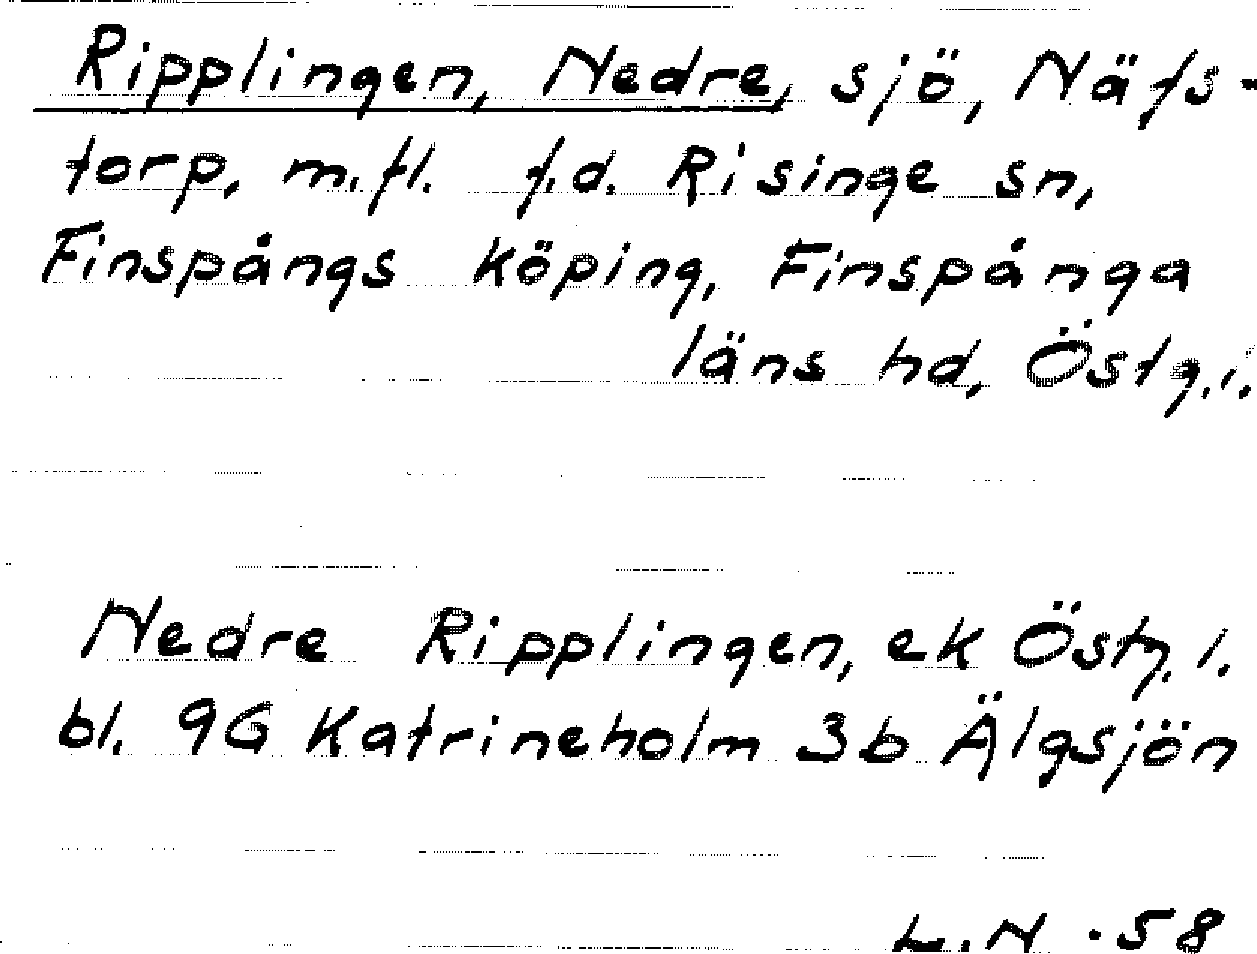 Ripplingen, Nedre, sjö, Näfs-
torp, m.fl. f.d. Risinge sn,
Finspångs köping, Finspånga
läns hd, Östg.l.
Nedre Ripplingen, ek Östg. l.
bl. 9G Katrineholm 3b Älgsjön
L.N. -58